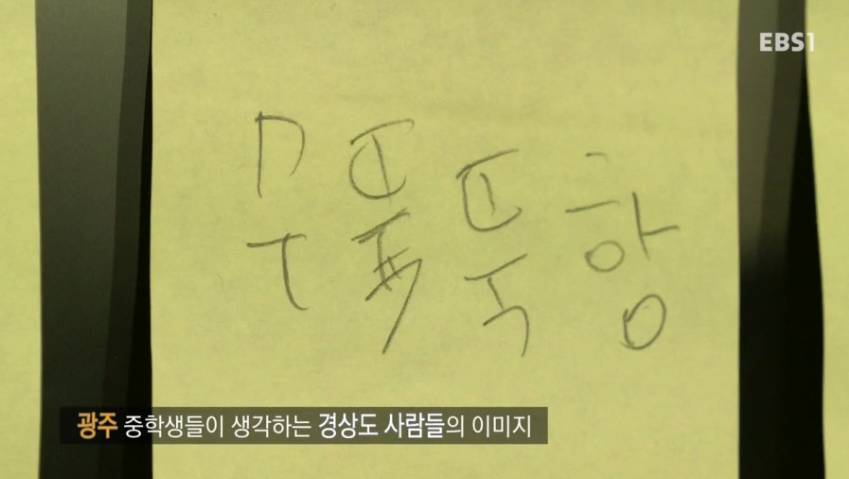 EBS1
무뚝뚝항
광주 중학생들이 생각하는 경상도 사람들의 이미지